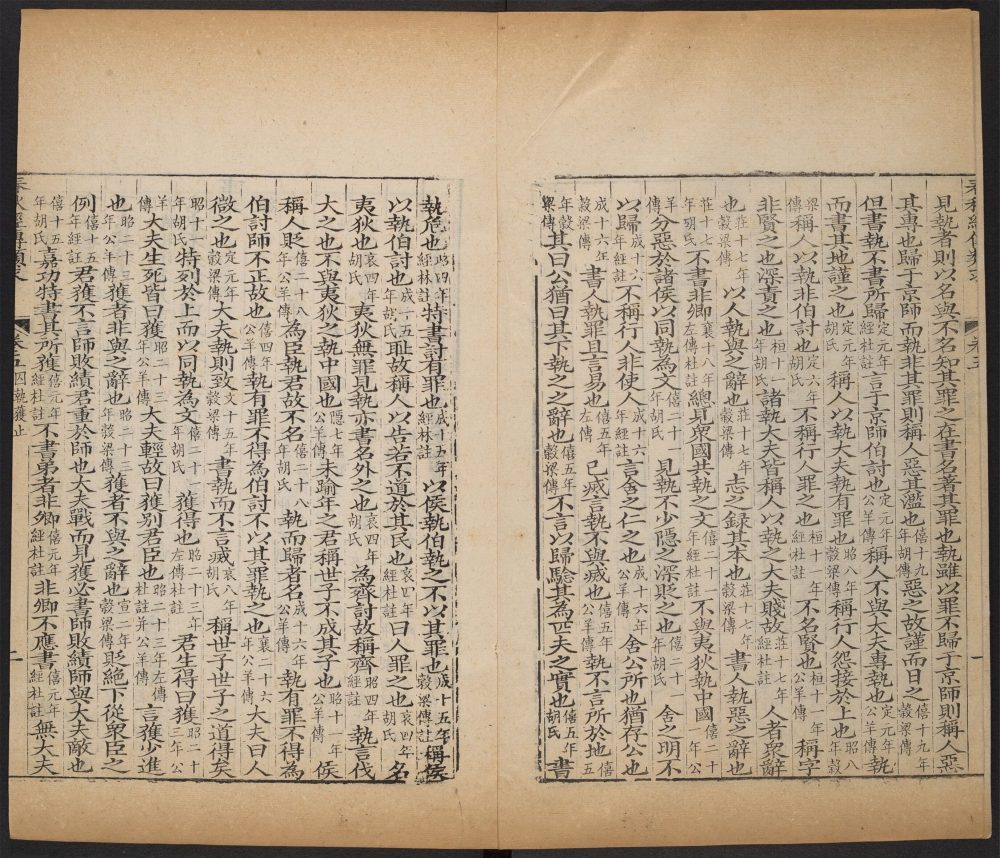 見執者則以名與不名知其罪之在書名著其罪也執雖以罪不歸于京師則稱人惡
其專也歸于京師而執非其罪則稱人惡其濫也僖十九年胡氏惡之故謹而日之僖十九年穀梁傳
但書執不書所歸定元年經杜註言于京師伯討也定元年公羊傳稱人不與大夫專執也定元年公羊傳執
而書其地謹之也定元年胡氏稱人以執大夫執有罪也昭八年穀梁傳稱行人怨接於上也昭八年穀
梁傳稱人以執非伯討也定六年胡氏不稱行人罪之也桓十一年經杜註不名賢也桓十一年公羊傳稱字
非賢之也深責之也桓十一年胡氏諸執大夫皆稱人以執之大夫賤故莊十七年經杜註人者眾辭
也莊十七年穀梁傳以人執與之辭也莊十七年穀梁傳志之録其本也莊十七年公羊傳書人執惡之辭也
莊十七年胡氏不書非卿襄十八年左傳杜註總見眾國共執之文僖二十一年經杜註不與夷狄執中國僖二十一年公
羊傳分惡於諸侯以同執為文僖二十一年胡氏見執不少隱之深貶之也僖二十一年胡氏舍之明不
以歸成十六年經杜註不稱行人非使人成十六年經杜註言舍之仁之也成十六年公羊傳舍公所也猶存公也
成十六年穀梁傳書人執罪且言易也僖五年左傳已烕言執不與烕也僖五年公羊傳執不言所於地僖五
年穀梁傳其曰公猶曰其下執之之辭也僖五年穀梁傳不言以歸驗其為匹夫之實也僖五年胡氏書
執危也昭四年經林註特書討有罪也成十五年經林註以侯執伯執之不以其罪也成十五年穀梁傳註稱侯
以執伯討也成十五年胡氏恥故稱人以告若不道於其民也哀四年經杜註曰人罪之也哀四年胡氏名
夷狄也哀四年胡氏夷狄無罪見執亦書名外之也哀四年胡氏為齊討故稱齊昭四年公羊傳執言伐
大之也不與夷狄之執中國也隱七年公羊傳未踰年之君稱世子不成其子也昭十一年公羊傳侯
稱人貶僖二十八年公羊傳為臣執君故不名僖二十八年胡氏執而歸者名成十六年公羊傳執有罪不得為
伯討師不正故也僖四年公羊傳執有罪不得為伯討不以其罪執之也襄二十六年公羊傳大夫曰人
微之也定元年穀梁傳大夫執則致文十五年穀梁傳書執而不言烕哀八年胡氏稱世子世子之道得矣
昭十一年胡氏特列於上而以同執為文僖二十一年胡氏獲得也昭二十三年左傳杜註君生得曰獲昭二十三年公
羊傳大夫生死皆曰獲昭二十三年公羊傳大夫輕故曰獲别君臣也昭二十三年左傳杜註并公羊傳言獲少進
也昭二十三年公羊傳獲者非與之辭也昭二十三年穀梁傳獲者不與之辭也宣二年穀梁傳貶絕下從衆臣之
例僖十五年經杜註君獲不言師敗績君重於師也大夫戰而見獲必書師敗績師與大夫敵也
僖十五年胡氏嘉功特書其所獲僖元年經杜註不書弟者非卿僖元年經杜註非卿不應書僖元年經杜註無大夫
春秋經傳類求
卷五
四執獲止